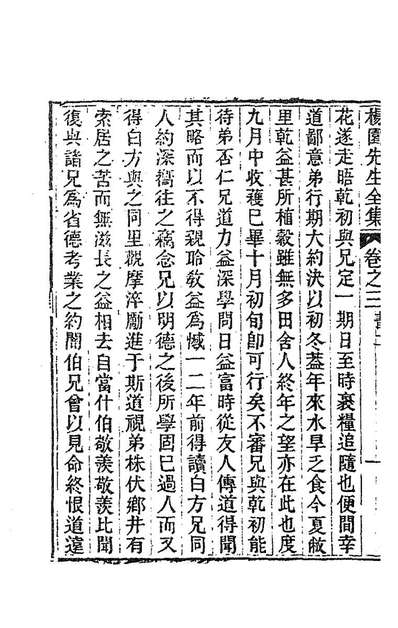 楊園先生全集 卷之三 書二 一
花遂走晤乾初與兄定一期日至時裹糧追隨也便間幸
道鄙意弟行期大約決以初冬葢年來水旱乏食今夏敝
里乾益甚所植穀雖無多田舍人終年之望亦在此也度
九月中收穫已畢十月初旬卽可行矣不審兄與乾初能
待弟否仁兄道力益深學問日益富時從友人傳道得聞
其略而以不得親聆敎益爲憾一二年前得讀白方兄同
人約深嚮往之竊念兄以明德之後所學固已過人而又
得白方與之同里觀摩淬勵進于斯道視弟株伏鄉井有
索居之苦而無滋長之益相去自當什伯敬羨敬羨比聞
復與諸兄爲省德考業之約闇伯兄曾以見命終恨道遠